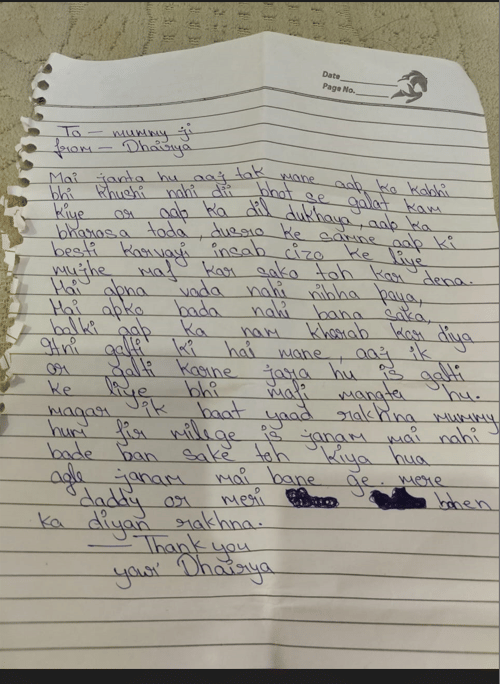 Date
Page No.
To – mummy ji
from – Dhairya
Mai janta hu aaj tak mane aap ko kabhi
bhi khushi nahi dii bhot se galat kam
kiye or aap ka dil dukhaya, aap ka
bharosa toda, dusro ke samne aap ki
besti karvayi insab cizo ke liye
mujhe maf kar sako toh kar dena.
Mai apna vada nahi nibha paya,
Mai apko bada nahi bana saka,
balki aap ka nam kharab kar diya
itni galti ki hai mane, aaj ik
or galti karne jara hu is galti
ke liye bhi mafi mangta hu.
magar ik baat yaad rakhna mummy
hum fir milege is janam mai nahi
bade ban sake toh kiya hua
agle janam mai bane ge. mere
daddy or meri bhen
ka diyan rakhna.
— Thank you
your Dhairya